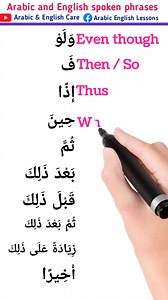 Arabic and English spoken phrases
Arabic & English Care Arabic English Lessons
وَلَوْ Even though
فَ Then / So
إِذًا Thus
حِينَ W
ثُمَّ
بَعْدَ ذَلِكَ
قَبْلَ ذَلِكَ
ثُمَّ بَعْدَ ذَلِكَ
زِيَادَةً عَلَى ذَلِكَ
أَخِيرًا